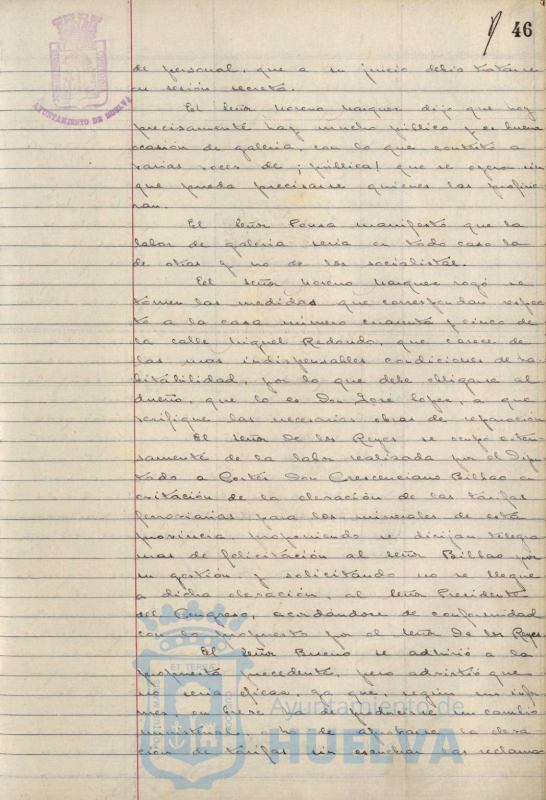 46
AYUNTAMIENTO DE HUELVA
de personal, que a su juicio debia tratarse
en sesión secreta.
El señor Moreno Marquez dijo que hoy
precisamente hay mucho público y es buena
ocasión de galeria, con lo que contestó a
varias voces de ¡publica! que se oyeron sin
que pueda precisarse quienes las profirie-
ran.
El señor Ponsa manifestó que la
labor de galeria seria en todo caso la
de otros y no de los socialistas.
El señor Moreno Marquez rogó se
tomen las medidas que correspondan respec-
to a la casa número cuarenta y cinco de
la calle Miguel Redondo, que carece de
las mas indispensables condiciones de ha-
bitabilidad, por lo que debe obligarse al
dueño, que lo es Don José Lopez, a que
verifique las necesarias obras de reparación
El señor De los Reyes se ocupó exten-
samente de la labor realizada por el Dipu-
tado a Cortes Don Crescenciano Bilbao en
evitación de la elevación de las tarifas
ferroviarias para los minerales de esta
provincia, proponiendo se dirijan telegra-
mas de felicitación al señor Bilbao por
su gestión y solicitando no se llegue
a dicha elevación, al señor Presidente
del Congreso, acordándose de conformidad
con lo propuesto por el señor De los Reyes.
El señor Bueno se adhirió a la
propuesta precedente, pero advirtió que
no seria eficaz, ya que, según sus infor-
mes en breve ha de producirse un cambio
ministerial, de aprobarse la eleva-
ción de tarifas sin escuchar las reclama-
Ayuntamiento de
HUELVA